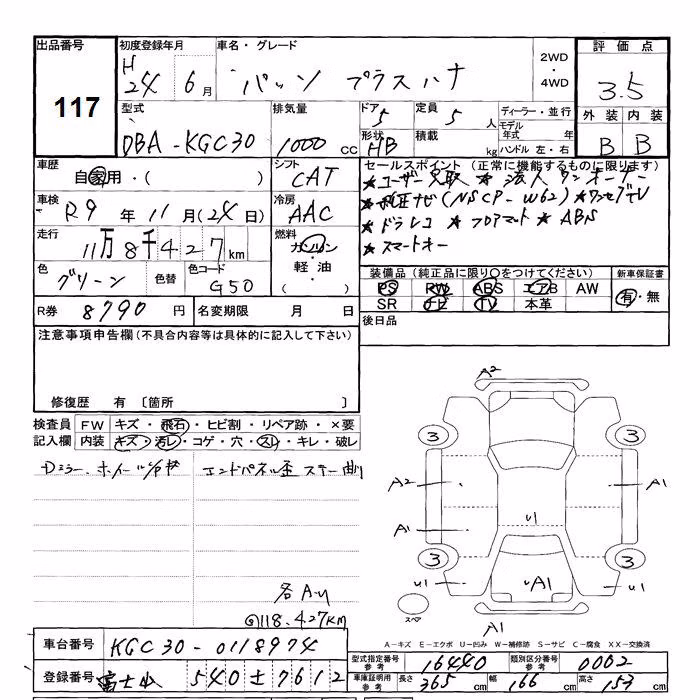 出品番号 初度登録年月 車名・グレード 2WD・4WD 評価点
117 H24 6月 パッソ プラスハナ 3.5
型式 排気量 ドア 定員 ディーラー・並行 外装 内装
DBA-KGC30 1000cc 5 5人 モデル年式 年 B B
形状 積載 ハンドル 左・右
HB kg
車歴 シフト セールスポイント (正常に機能するものに限ります)
自家用・( ) CAT ★ユーザー買取 ★法人ワンオーナー
車検 冷房 ★純正ナビ(NSCP-W62) ★ワンセグTV
R9年11月(24日) AAC ★ドラレコ ★フロアマット ★ABS
走行 燃料 ★スマートキー
11万8千427km ガソリン・軽油・
色 色替 色コード 装備品 (純正品に限り○をつけてください) 新車保証書
グリーン G50 PS PW ABS エアB AW 有・無
SR ナビ TV 本革
R券 8790円 名変期限 月 日 後日品
注意事項申告欄 (不具合内容等は具体的に記入して下さい)
修復歴 有 〔箇所 〕
検査員 FW キズ・飛石・ヒビ割・リペア跡・×要
記入欄 内装 キズ・汚レ・コゲ・穴・スレ・キレ・破レ
Dミラー、ホイール エンドパネル歪 ステー曲
A2
3 3
A2 A1
A1 U1
3 3
U1 UA1 U1
スペア
A1
各A・U
118,427km
A-キズ E-エクボ U-凹み W-補修跡 S-サビ C-腐食 XX-交換済
車台番号 KGC30-0118974
型式指定番号 参考 16440 類別区分番号 参考 0002
登録番号 富士山 540 ± 7612
車庫証明用 参考 長さ 365cm 幅 166cm 高さ 153cm